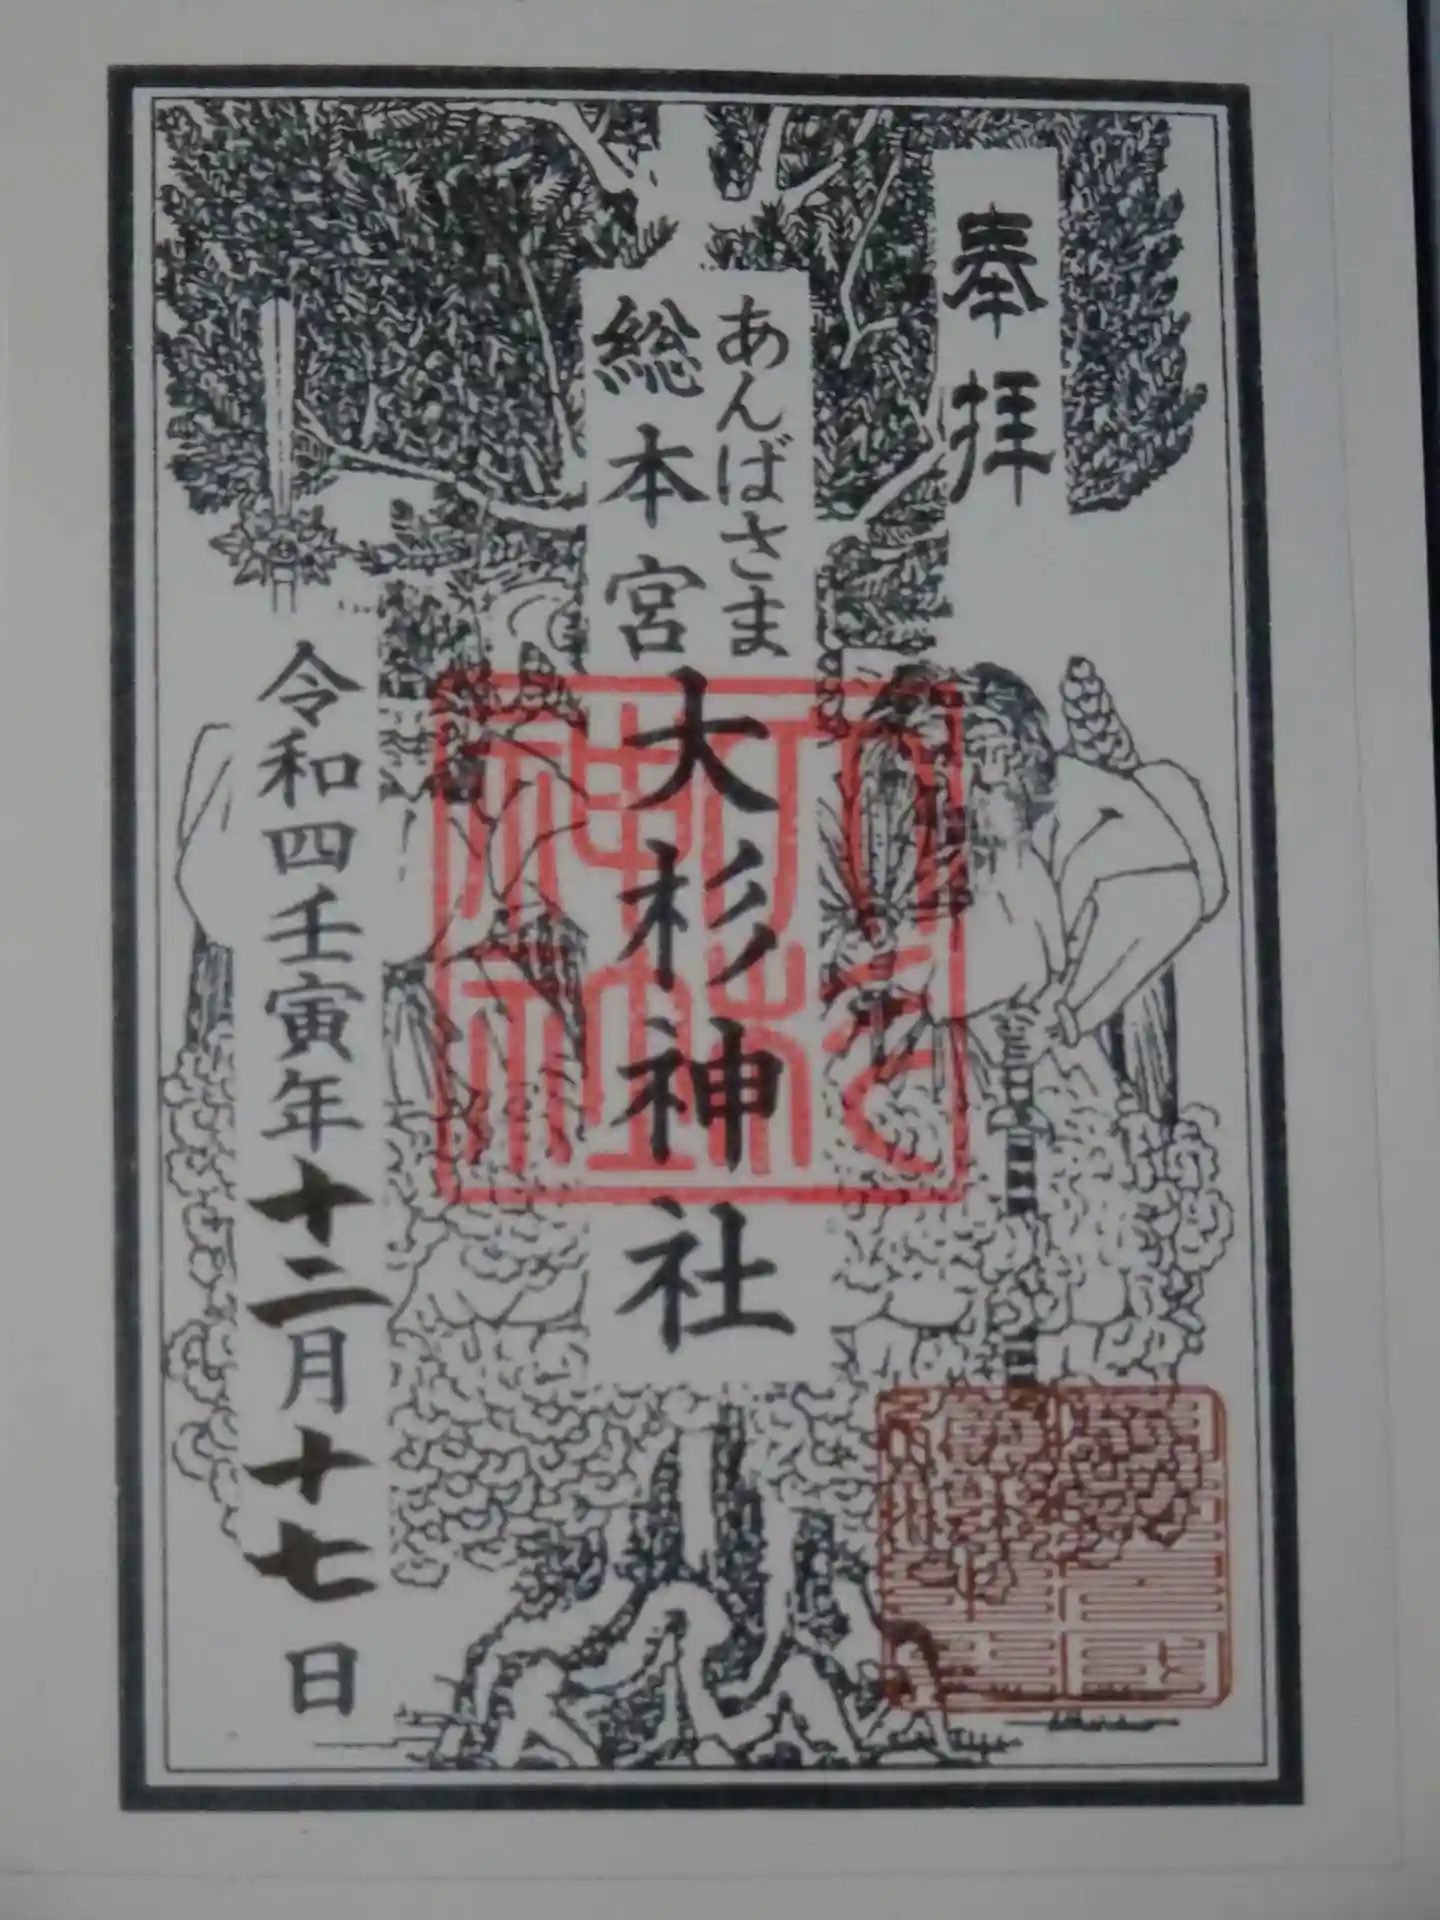 奉拝
あんばさま
総本宮
大杉神社
令和四壬寅年十二月十七日
大杉神社